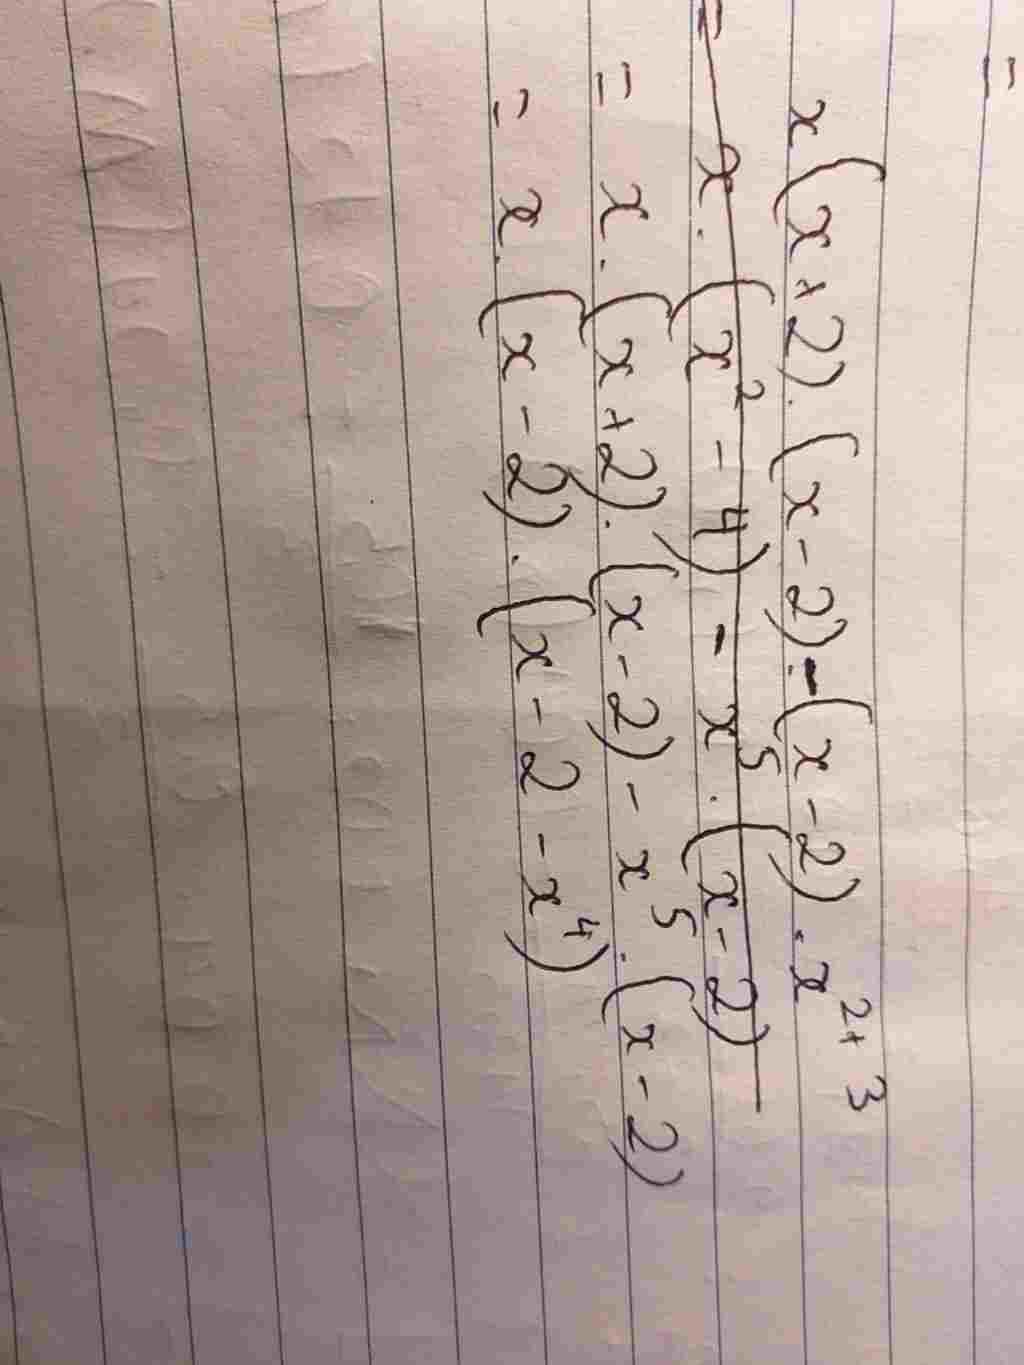 =
x(x+2).(x-2)-(x-2).x²⁺³
= x.(x²-4)-x⁵.(x-2)
= x.(x+2).(x-2)-x⁵.(x-2)
= x.(x-2).(x-2-x⁴)